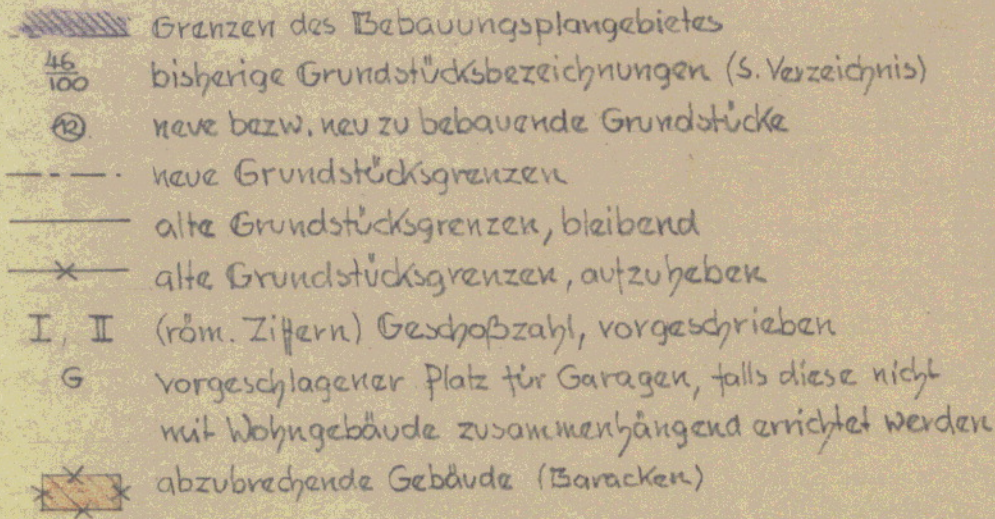 Grenzen des Bebauungsplangebietes
46/100 bisherige Grundstücksbezeichnungen (s. Verzeichnis)
12 neue bezw. neu zu bebauende Grundstücke
neue Grundstücksgrenzen
alte Grundstücksgrenzen, bleibend
alte Grundstücksgrenzen, aufzuheben
I, II (röm. Ziffern) Geschoßzahl, vorgeschrieben
G vorgeschlagener Platz für Garagen, falls diese nicht
mit Wohngebäude zusammenhängend errichtet werden
abzubrechende Gebäude (Baracken)